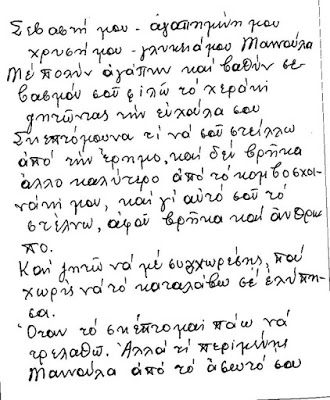 Σεβαστή μου - ἀγαπημένη μου
χρυσή μου - γλυκειά μου Μαννούλα
Μέ πολύν ἀγάπην καί βαθύν σε-
βασμόν σοῦ φιλῶ τό χεράκι
ζητῶντας τήν εὐχούλα σου
Σκεπτόμουνα τί νά σοῦ στείλλω
ἀπό τήν ἔρημο, καί δέν βρῆκα
ἄλλο καλύτερο ἀπό τό κομβοσχοι-
νάκι μου, καί γι' αὐτό σοῦ τό
στέλνω, ἀφοῦ βρῆκα καί ἄνθρω
πο.
Καί ζητῶ νά μέ συγχωρέσης, πού
χωρίς νά τό καταλάβω σέ ἐλύπη-
σα.
Ὅταν τό σκέπτομαι πάω νά
τρελαθῶ. Ἀλλά τί περιμένης
Μαννούλα ἀπό τό ἄσωτό σου